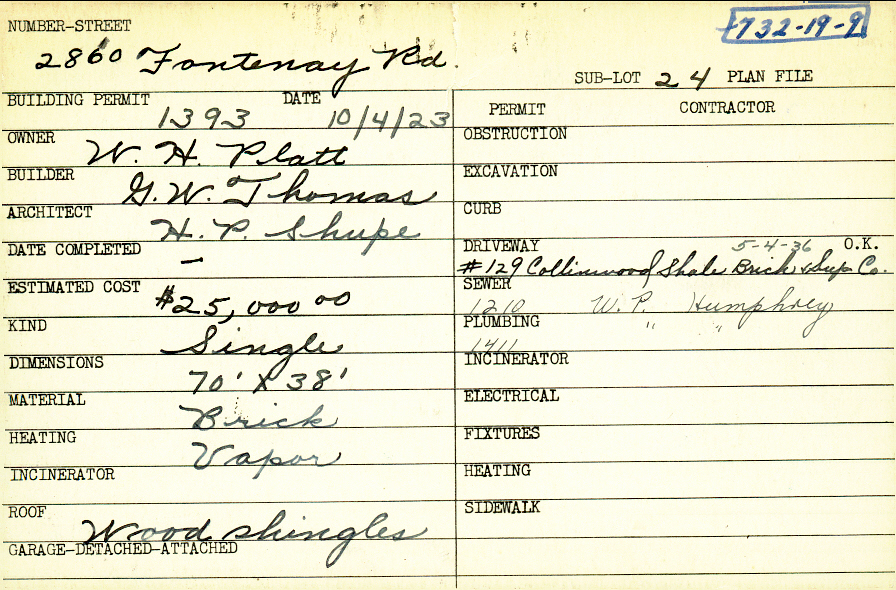 732-19-9
NUMBER-STREET
2860 Fontenay Rd.
SUB-LOT 24 PLAN FILE
BUILDING PERMIT 1393 DATE 10/4/23
OWNER W. H. Platt
BUILDER G. W. Thomas
ARCHITECT H. P. Shupe
DATE COMPLETED —
ESTIMATED COST $25,000 00
KIND Single
DIMENSIONS 70' X 38'
MATERIAL Brick
HEATING Vapor
INCINERATOR
ROOF Wood shingles
GARAGE-DETACHED-ATTACHED
PERMIT CONTRACTOR
OBSTRUCTION
EXCAVATION
CURB
DRIVEWAY 5-4-36 O.K.
#129 Collinwood Shale Brick & Sup Co.
SEWER
1210 W. P. Humphrey
PLUMBING " "
1411
INCINERATOR
ELECTRICAL
FIXTURES
HEATING
SIDEWALK